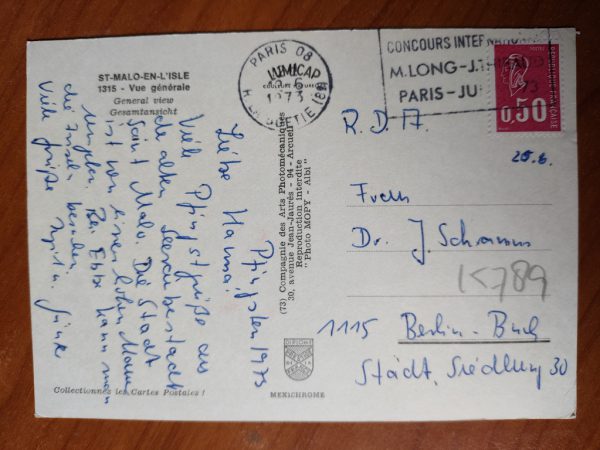 ST-MALO-EN-L'ISLE
1315 - Vue générale
General view
Gesamtansicht
Pfingsten 1973
Liebe Hanna!
Viele Pfingstgrüße aus
der alten Seeräuberstadt
Saint Malo. Die Stadt
ist von einer hohen Mauer
umgeben. Bei Ebbe kann man
die Inseln besuchen.
Viele Grüße
Collectionnez les Cartes Postales !
(73) Compagnie des Arts Photomécaniques
30, avenue Jean-Jaurès - 94 - Arcueil
Reproduction interdite
"Photo MOPY - Albi"
LUMICAP
MEXICHROME
PARIS 08
1973
R. LA BOETIE (8e)
CONCOURS INTERNATIONAL
M.LONG-J.THIBAUD
PARIS-JUIN
73
0,50
REPUBLIQUE FRANÇAISE
R.D.A.
25.6.
Dr. J. Schramm
K789
1115 Berlin-Buch
Städt. Siedlung 30